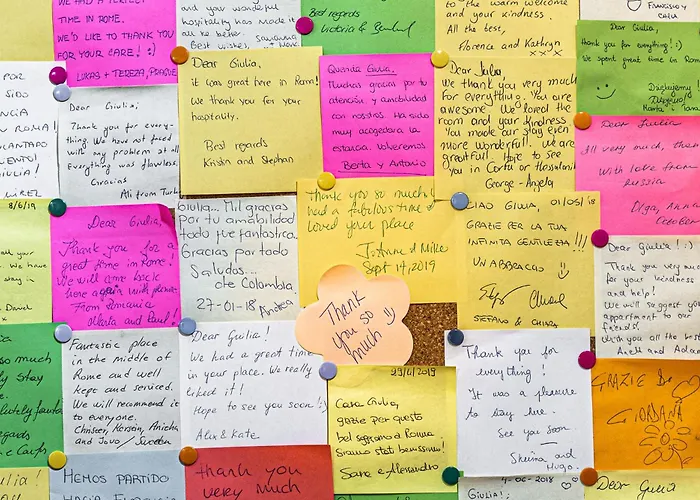 WE HAD A PERFECT
TIME IN ROME.
WE'D LIKE TO THANK YOU
FOR YOUR CARE! :)
LUKAS + TEREZA, PRAGUE
and you wonderful
hospitality has made it
all be better.
Best wishes,
Best regards
Victoria &
to the warm welcome
and your kindness.
All the best,
Florence and Kathryn
xxx
Dear Giulia,
thank you for everything! :)
We spent great time in Rome
Dziękujemy!
Marta
POR
SIDO
EN ROMA!
ENCANTADO
Dear Giulia;
Thank you for every-
thing. We have not faced
with any problem at all
Everything was flawless.
Gracias
Ali from Turk
Dear Giulia,
it was great here in Roma!
We thank you for your
hospitality.
Best regards
Kristin and Stephan
Querida Giulia:
Muchas gracias por tu
atención y amabilidad
con nosotros. Ha sido
muy acogedora la
estancia. Volveremos
Berta y Antonio
Dear Julia
We thank you very much
for everything. You are
awesome. We loved the
room and your kindness
You made our stay even
more wonderful. We are
greatfull. Hope to see
you in Corfu or Thessaloni
George - Angela
Dear Julia
All very much, then
with love from
Russia
Olga, Anna
October
8/6/19
Dear Giulia,
Thank you for a
great time in Rome!
We will come back
here again with pleasure
From Romania
Alberta and Paul!
Giulia... Mil gracias
Por tu amabilidad
todo fue fantastico..
Gracias por todo
Saludos...
de Colombia.
27-01-18 Andrea
Thank you so much!
had a fabulous time &
loved your place
JoAnne & Mike
Sept 14, 2019
CIAO GIULIA, 01/05/18
GRAZIE PER LA TUA
INFINITA GENTILEZZA!!!
UN ABBRACCIO
STEFANO & CHIARA
Dear Giulia! :)
Thank you very much
for your kindness
and help!
We will suggest your
appartment to our
friends.
Wish you all the best
Aneli and Adam
Thank
you so
much
so much
stay
regards
Fantastic place
in the middle of
Rome and well
kept and serviced.
We will recommend it
to everyone.
Christer, Kerstin, Annicka
and Jovo / Sweden
Dear Giulia!
We had a great time
in your place. We really
liked it!
Hope to see you soon! :)
Alex & Kate
29/4/2019
Cara Giulia,
grazie per questo
bel soggiorno a Roma
Siamo stati benissimo!
Sara e Alessandro
Thank you for
everything!
It was a pleasure
to stay here.
See you soon
Sheina and
Hugo.
GRAZIE DI
GIORDANA
HEMOS PARTIDO
HACIA
thank you
very much
4-06-2018
Giulia!
Dear Giulia